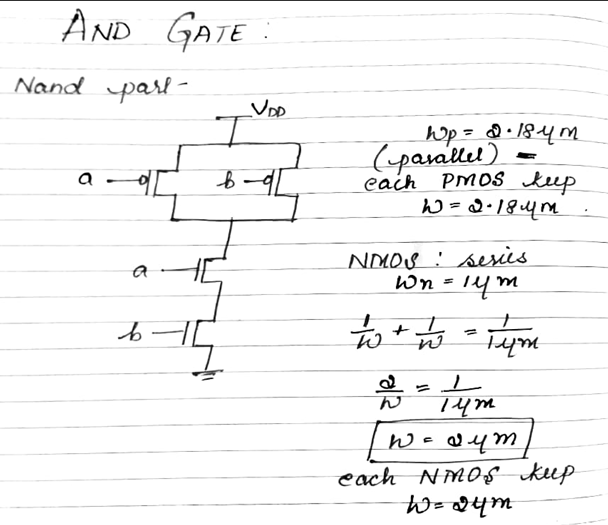 AND GATE :
Nand part -
VDD
a
b
a
b
Wp = 2.18 μm
(parallel) -
each PMOS keep
W = 2.18 μm .
NMOS : series
Wn = 1 μm
1/W + 1/W = 1/1 μm
2/W = 1/1 μm
W = 2 μm
each NMOS keep
W = 2 μm